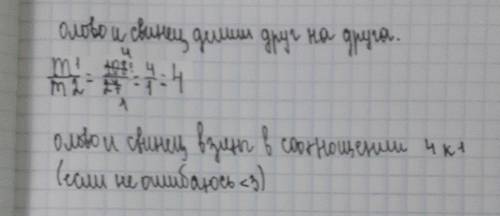 олово и свинец делим друг на друга.
m1/m2 = 108/27 = 4/1 = 4
олово и свинец взяты в соотношении 4 к 1
(если не ошибаюсь <3)